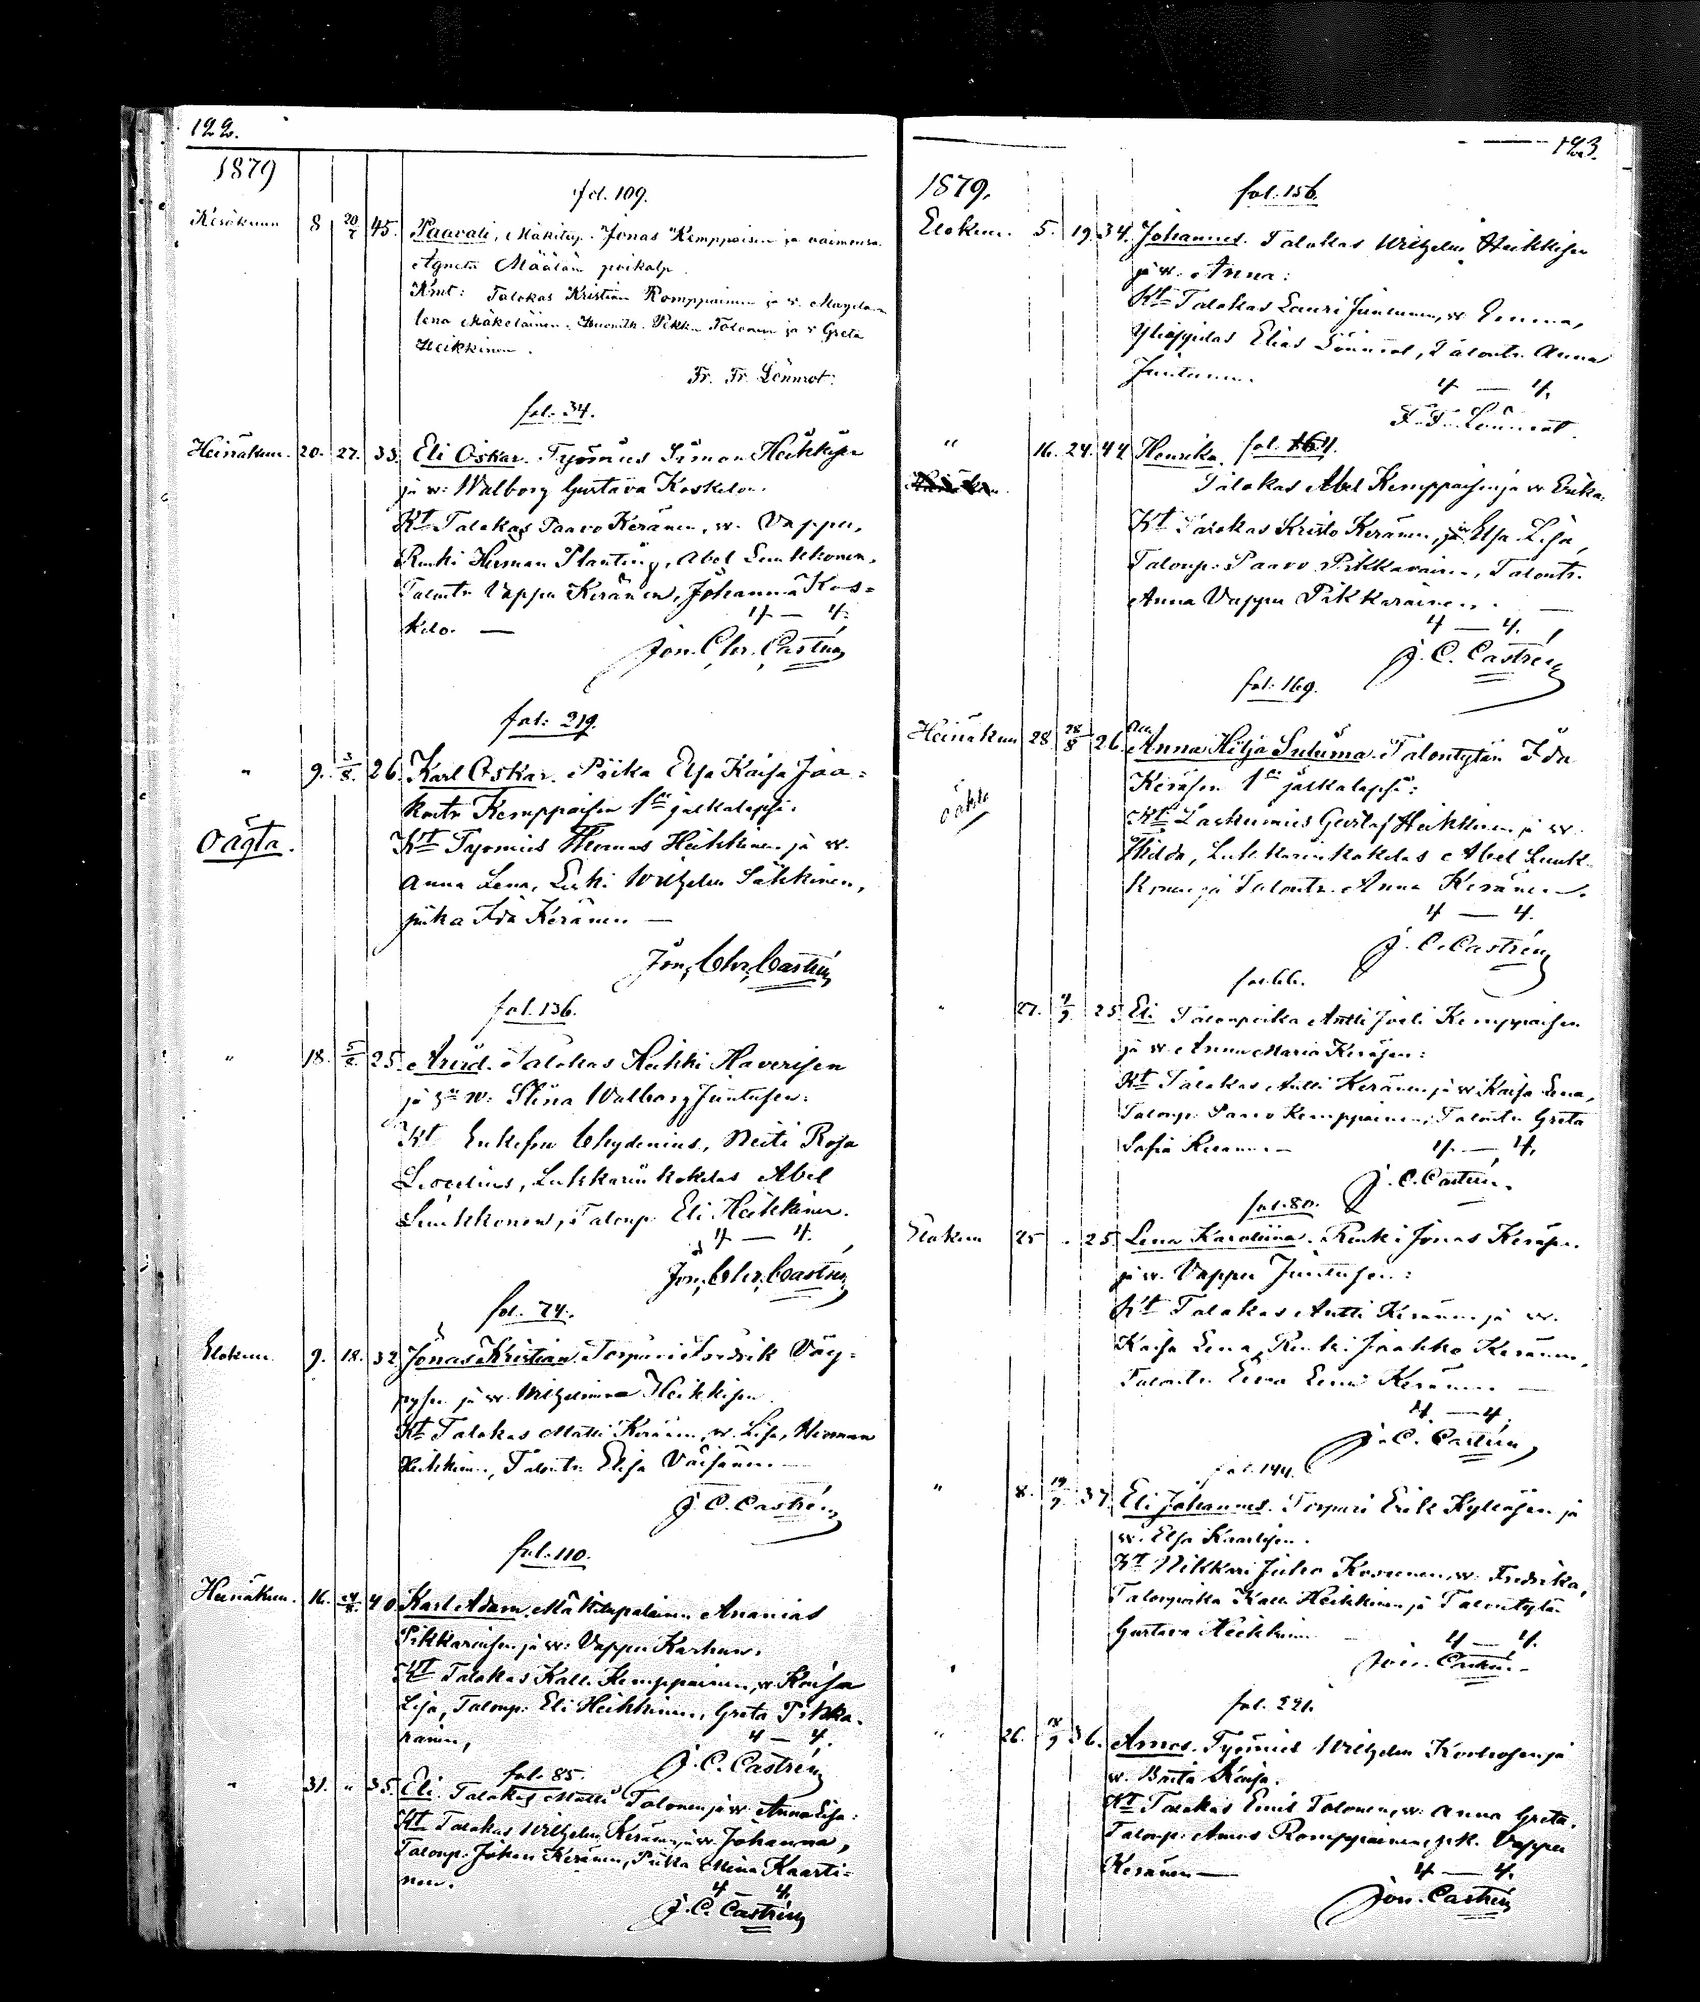 122.
1879
fol. 109.
Kesäkuun 8 20/7 45. Paavali, Mäkitup. Jonas Kemppaisen ja vaimonsa
Agneta Määtän poikalp.
Kmt: Talokas Kristian Romppainen ja v. Magda-
lena Mäkeläinen. Pekka Tolonen ja v Greta
Heikkinen.
Fr. Fr. Lönnrot.
fol. 34.
Heinäkuu. 20. 27. 33. Eli Oskar. Työmies Simon Heikkisen
ja w: Walborg Gustava Koskelon.
Kt Talokas Paavo Keränen, w. Vappu,
Renki Herman Planting, Abel Luukkonen,
Talontr. Vappu Keränen, Johanna Kos=
kelo. —
4 — 4.
Jon. Chr. Castrén
fol: 219.
" 9. 3/8. 26. Karl Oskar. Piika Elsa Kaisa Jaa=
kontr Kemppaisen 1 jalkalapsi.
oägta.
Kt Työmies Thomas Heikkinen ja w.
Anna Lena, Wilhelm Säkkinen,
piika Ida Keränen —
Jon. Chr. Castrén
fol. 136.
" 18. 5/8. 25. Arvid. Talokas Heikki Haverisen
ja w: Stina Walborg Juntusen.
Kt Chydenius, Neiti Rosa
Lukkarin kokelas Abel
Luukkonen, Talonp. Eli Heikkinen.
4 — 4.
Jon. Chr. Castrén
fol. 74.
Elokuu. 9. 18. 32. Jonas Kristian. Torpari Fredrik Väy=
rysen ja w. Wilhelmina Heikkisen
Kt Talokas Matti Keränen, w. Lisa, Herman
Heikkinen, Talontr. Elsa Väisänen. —
J. C. Castrén
fol. 110.
Heinäkuu. 16. 40. Karl Adam. Mäkitupalainen Ananias
Pikkaraisen ja w: Vappu Karhun.
Kt Talokas Kalle Kemppainen, w. Kaisa
Lisa, Talonp: Eli Heikkinen, Greta Pikka-
rainen,
4 — 4.
J. C. Castrén
fol. 85.
" 31. " 35. Eli. Talokas Matti Tolonen ja w. Anna Lisa:
Kt Talokas Wilhelm Keränen ja w. Johanna,
Talonp. Johan Keränen, Piika Mina Kaarti-
nen.
4 4.
J. C. Castrén
123.
1879.
fol. 156.
Elokuu. 5. 19. 34. Johannes. Talokas Wilhelm Heikkisen
ja w. Anna:
Kt Talokas Lauri Juntunen, w. Emma,
Ylioppilas Elias Lönnrot, Talontr. Anna
Juntunen.
4 — 4.
F. F. Lönnrot.
" 16. 24. 44. Henrika. fol. 164.
Talokas Abel Kemppaisen ja w Erika.
Kt Talokas Kristo Keränen, ja w Elsa Lisa,
Talonp: Paavo Pikkarainen, Talontr.
Anna Vappu Pikkarainen. —
4 — 4.
J. C. Castrén
fol. 169.
Heinäkuu 28 28/8 26. Anna Hilja Talontytön Ida
Keräsen 1 jalkalapsi:
oäkta
Kt Gustaf Heikkinen ja w.
Hilda, Lukkarin kokelas Abel Luuk-
konen ja Talontr. Anna Keränen.
4 — 4.
J. C. Castrén
fol. 66.
" 27. 9. 25. Eli Talonpoika Antti Joeli Kemppaisen
ja w. Anna Maria Keräsen:
Kt Talokas Antti Keränen ja w. Kaisa Lena,
Talonp. Paavo Kemppainen, Talontr. Greta
Sofia Keränen. —
4. — 4.
J. C. Castrén.
fol. 80.
Elokuu 25 . 25 Lena Karoliina. Renki Jonas Keräsen
ja w. Vappu Juntusen:
Kt Talokas Antti Keränen ja w.
Kaisa Lena, Renki Jaakko Keränen,
Talontr. Eeva Leena Keränen —
4. — 4.
J. C. Castrén
fol. 144.
" 8. 19/9. 37 Eli Johannes. Torpari Erik Kyllösen ja
w. Elsa Kaartisen.
Kt Nikkari Juho Kovanen, w. Fredrika,
Talonpoika Kalle Heikkinen ja Talontytär
Gustava Heikkinen —
4 — 4.
Jon. Castrén
fol. 221.
" 26. 36. Amos. Työmies Wilhelm Korhosen ja
w. Brita Kaisa.
Kt Talokas Emil Tolonen, w: Anna Greta,
Talonp: Amos Romppainen, pk. Vappu
Keränen —
4 — 4.
Jon. Castrén